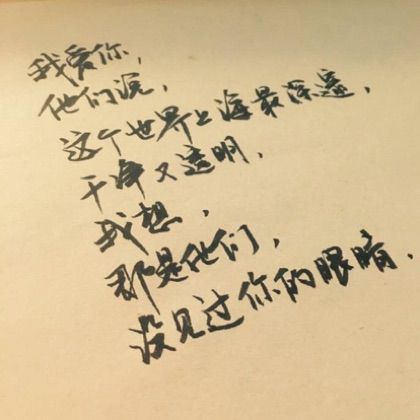 我爱你，
他们说，
这个世界上海最深邃，
干净又透明，
我想，
那是他们，
没见过你的眼睛．